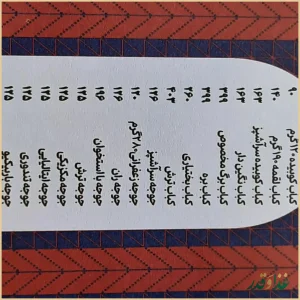 کباب کوبیده ۱۲۰ گرم ۹۰
کباب لقمه ۱۹۰ گرم ۱۴۰
کباب کوبیده سرآشپز ۱۶۳
کباب نگین دار ۱۶۳
کباب برگ مخصوص ۳۹۹
کباب بره ۳۹۹
کباب بختیاری ۲۶۰
کباب ترش ۴۰۳
جوجه سرآشپز ۱۴۶
جوجه زعفرانی ۲۸۰ گرم ۱۳۰
جوجه ران ۱۴۶
جوجه با استخوان ۱۶۰
جوجه ترش ۱۲۵
جوجه مکزیکی ۱۲۵
جوجه ایتالیایی ۱۲۵
جوجه تندوری ۱۲۵
جوجه باربیکیو ۱۲۵
غذا و قدر